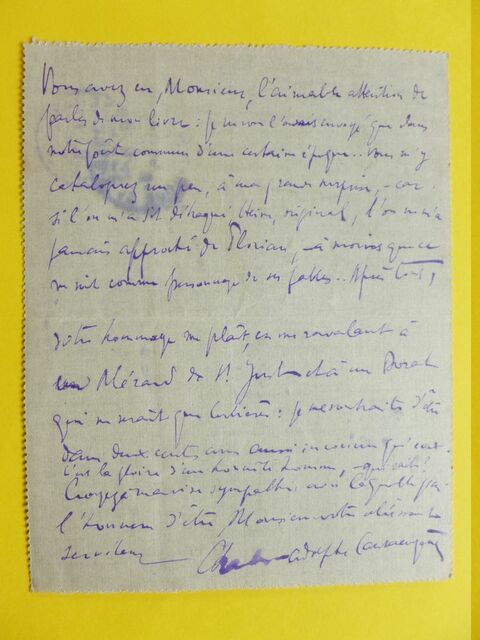 Vous avez eu, Monsieur, l'aimable attention de
parler de mon livre : je ne vous l'avais envoyé que dans
notre goût commun d'une certaine époque... vous m'y
cataloguez un peu, à ma grande surprise, - car
si l'on m'a dit détraqué, original, l'on ne m'a
jamais approché de Florian, - à moins que ce
ne soit comme personnage de ses fables.. Après tout,
votre hommage me plaît, en me ravalant à
un Mérard de St Just et à un Dorat
qui ne serait que : je me souhaite d'être
dans deux cents ans aussi inconnu qu'eux
c'est la gloire d'un honnête homme, - qui sait!
Croyez à ma vive sympathie avec laquelle j'ai
l'honneur d'être, Monsieur votre
serviteur
Adolphe